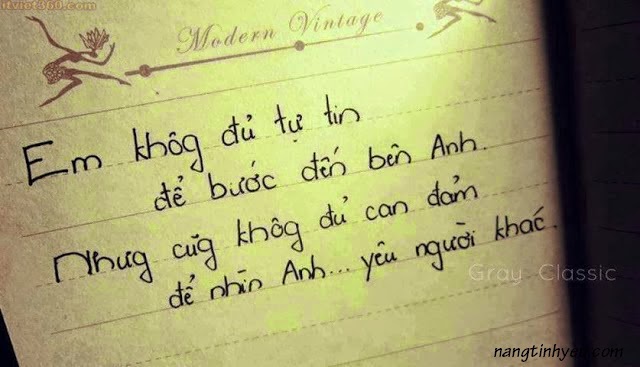 itviet360.com
Modern Vintage
Em khôg đủ tự tin
để bước đến bên Anh.
Nhưg cũg khôg đủ can đảm
để nhìn Anh... yêu người khác.
Gray Classic
nangtinhyeu.com